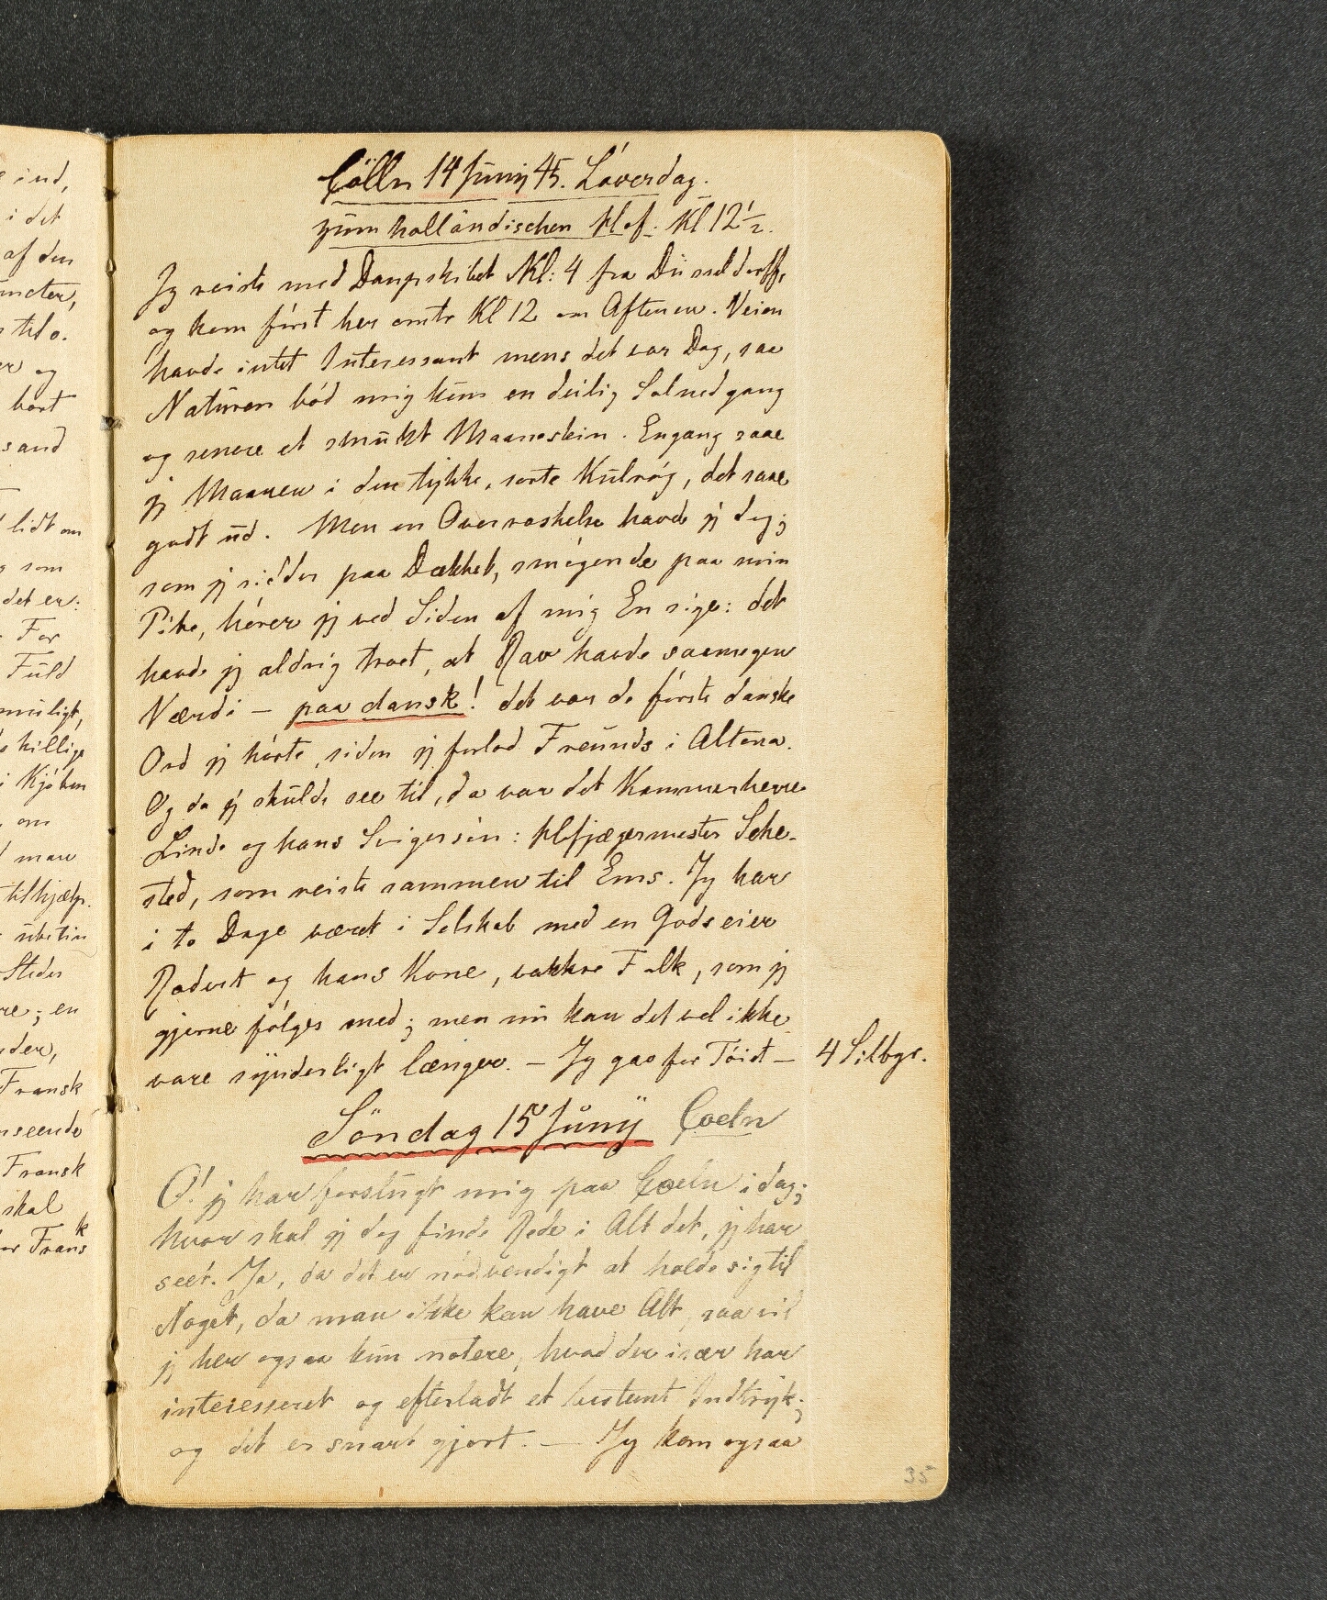 Cölln 14 Junÿ 45. Löverdag.
zum holländischen Hof. Kl 12½.
Jg reiste med Dampskibet Kl: 4 fra Düsseldorff,
og kom först her omtr Kl 12 om Aftenen. Veien
havde intet Interessant mens det var Dag, saa
Naturen böd mig kun en deilig Solnedgang
og senere et smukt Maaneskin. Engang saae
jg Maanen i den tykke, sorte Kulrög, det saae
godt ud. Men en Overraskelse havde jg dog;
som jg sidder paa Dækket, smögende paa min
Pibe, hörer jg ved Siden af mig En sige: det
havde jg aldrig troet, at Rav havde saamegen
Værdi – paa dansk! det var de förste danske
Ord jg hörte, siden jg forlod Freunds i Altona.
Og da jg skulde see til, da var det Kammerherre
Linde og hans Svigersön: Hofjægermester Sehe-
sted, som reiste sammen til Ems. Jg har
i to Dage været i Selskab med en Godseier
og hans Kone, vakkre Folk, som jg
gjerne fölges med; men nu kan det vel ikke
vare synderligt længer. – Jg gav for Töiet – 4 Silbgr.
Söndag 15 Junÿ Coeln
O! jg har forslugt mig paa Coeln i dag;
hvor skal jg dog finde Rede i Alt det, jg har
seet. Ja, da det er nödvendigt at holde sig til
Noget, da man ikke kan have Alt, saa vil
jg her ogsaa kun notere, hvad der især har
interesseret og efterladt et bestemt Indtryk;
og det er snart gjort. – Jg kom ogsaa
35
e ind,
i det
af den
er og
bort
sand
lidt om
som
det er:
For
Fuld
i Kjöben
om
man
tilhjælp.
Steder
re; en
Fransk
Fransk
skal
Fransk